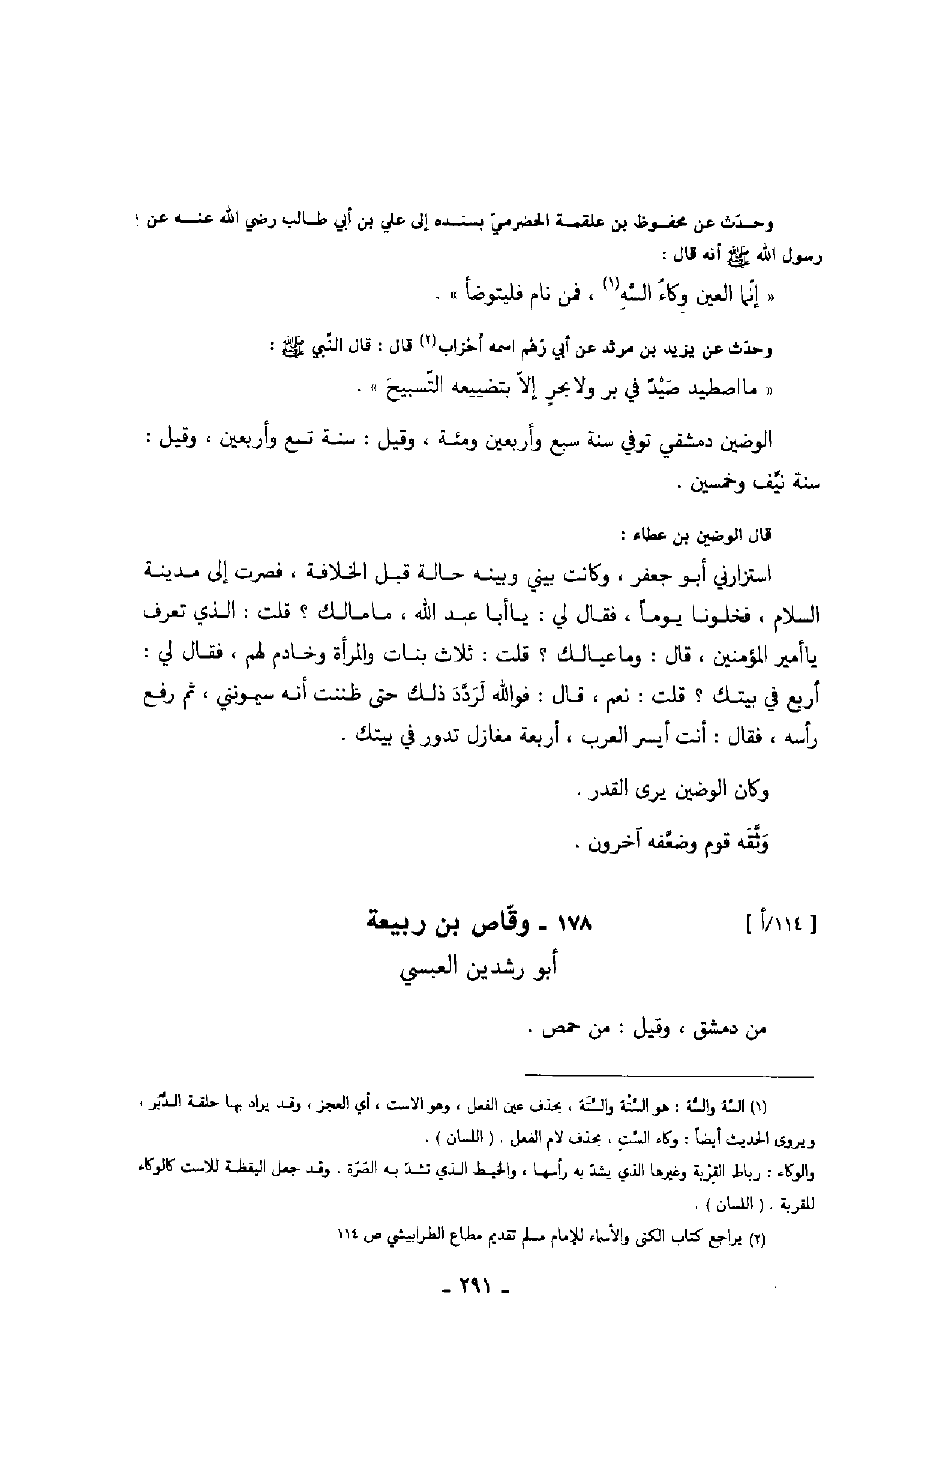 وحدّث عن محفوظ بن علقمة الحضرميّ بسنده إلى علي بن أبي طالب رضي الله عنه عن
رسول الله ﷺ أنه قال :
« إنّما العين وكاءُ السَّهِ(١) ، فمن نام فليتوضأ » .
وحدّث عن يزيد بن مرثد عن أبي رُهْم اسمه أحْزاب(٢) قال : قال النّبي ﷺ :
« مااصطيد صَيْدٌ في بر ولابحرٍ إلاّ بتضييعه التّسبيحَ » .
الوضين دمشقي توفي سنة سبع وأربعين ومئة ، وقيل : سنة تسع وأربعين ، وقيل :
سنة نيَّف وخمسين .
قال الوضين بن عطاء :
استزارني أبو جعفر ، وكانت بيني وبينه حالة قبل الخلافة ، فصرت إلى مدينة
السلام ، فخلونا يوماً ، فقال لي : ياأبا عبد الله ، مامالك ؟ قلت : الذي تعرف
ياأمير المؤمنين ، قال : وماعيالك ؟ قلت : ثلاث بنات والمرأة وخادم لهم ، فقال لي :
أربع في بيتك ؟ قلت : نعم ، قال : فوالله لَرَدَّدَ ذلك حتى ظننت أنه سيمونني ، ثم رفع
رأسه ، فقال : أنت أيسر العرب ، أربعة مغازل تدور في بيتك .
وكان الوضين يرى القدر .
وَثَّقَه قوم وضعَّفه آخرون .
[ ١١٤/أ ] ١٧٨ - وقّاص بن ربيعة
أبو رشدين العبسي
من دمشق ، وقيل : من حمص .
(١) السَّهُ والسُّهُ : هو السَّتْهُ والسَّتَهُ ، بحذف عين الفعل ، وهو الاست ، أي العجز ، وقد يراد بها حلقة الدُّبُر ،
ويروى الحديث أيضاً : وكاء السَّتِ ، بحذف لام الفعل . ( اللسان ) .
والوكاء : رباط القِرْبة وغيرها الذي يشدّ به رأسها ، والخيط الذي تشدّ به الصُرّة . وقد جعل اليقظة للاست كالوكاء
للقربة . ( اللسان ) .
(٢) يراجع كتاب الكنى والأسماء للإمام مسلم تقديم مطاع الطرابيشي ص ١١٤
- ٢٩١ -